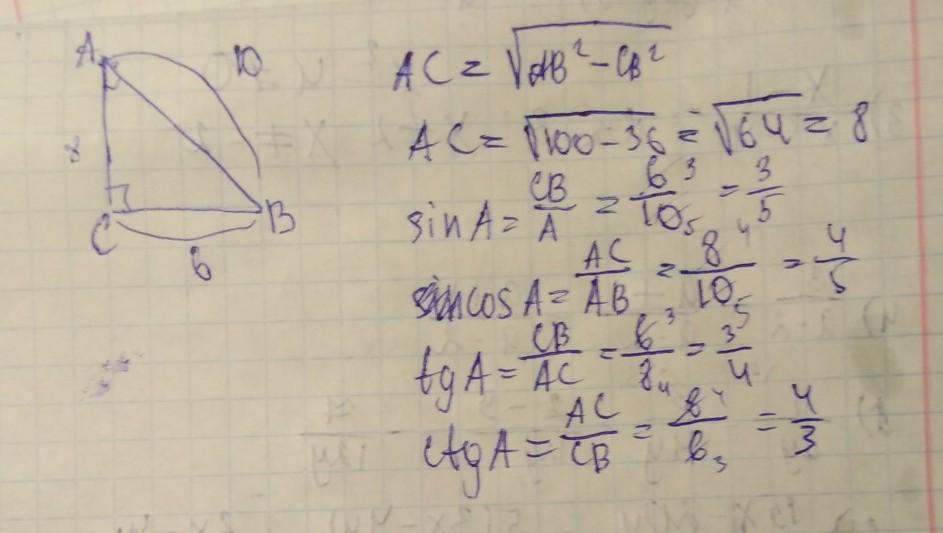 A
10
8
C
B
6
AC = √(AB² - CB²)
AC = √(100-36) = √64 = 8
sin A = CB/A = 6 3/10 5 = 3/5
cos A = AC/AB = 8 4/10 5 = 4/5
tg A = CB/AC = 6 3/8 4 = 3/4
ctg A = AC/CB = 8 4/6 3 = 4/3